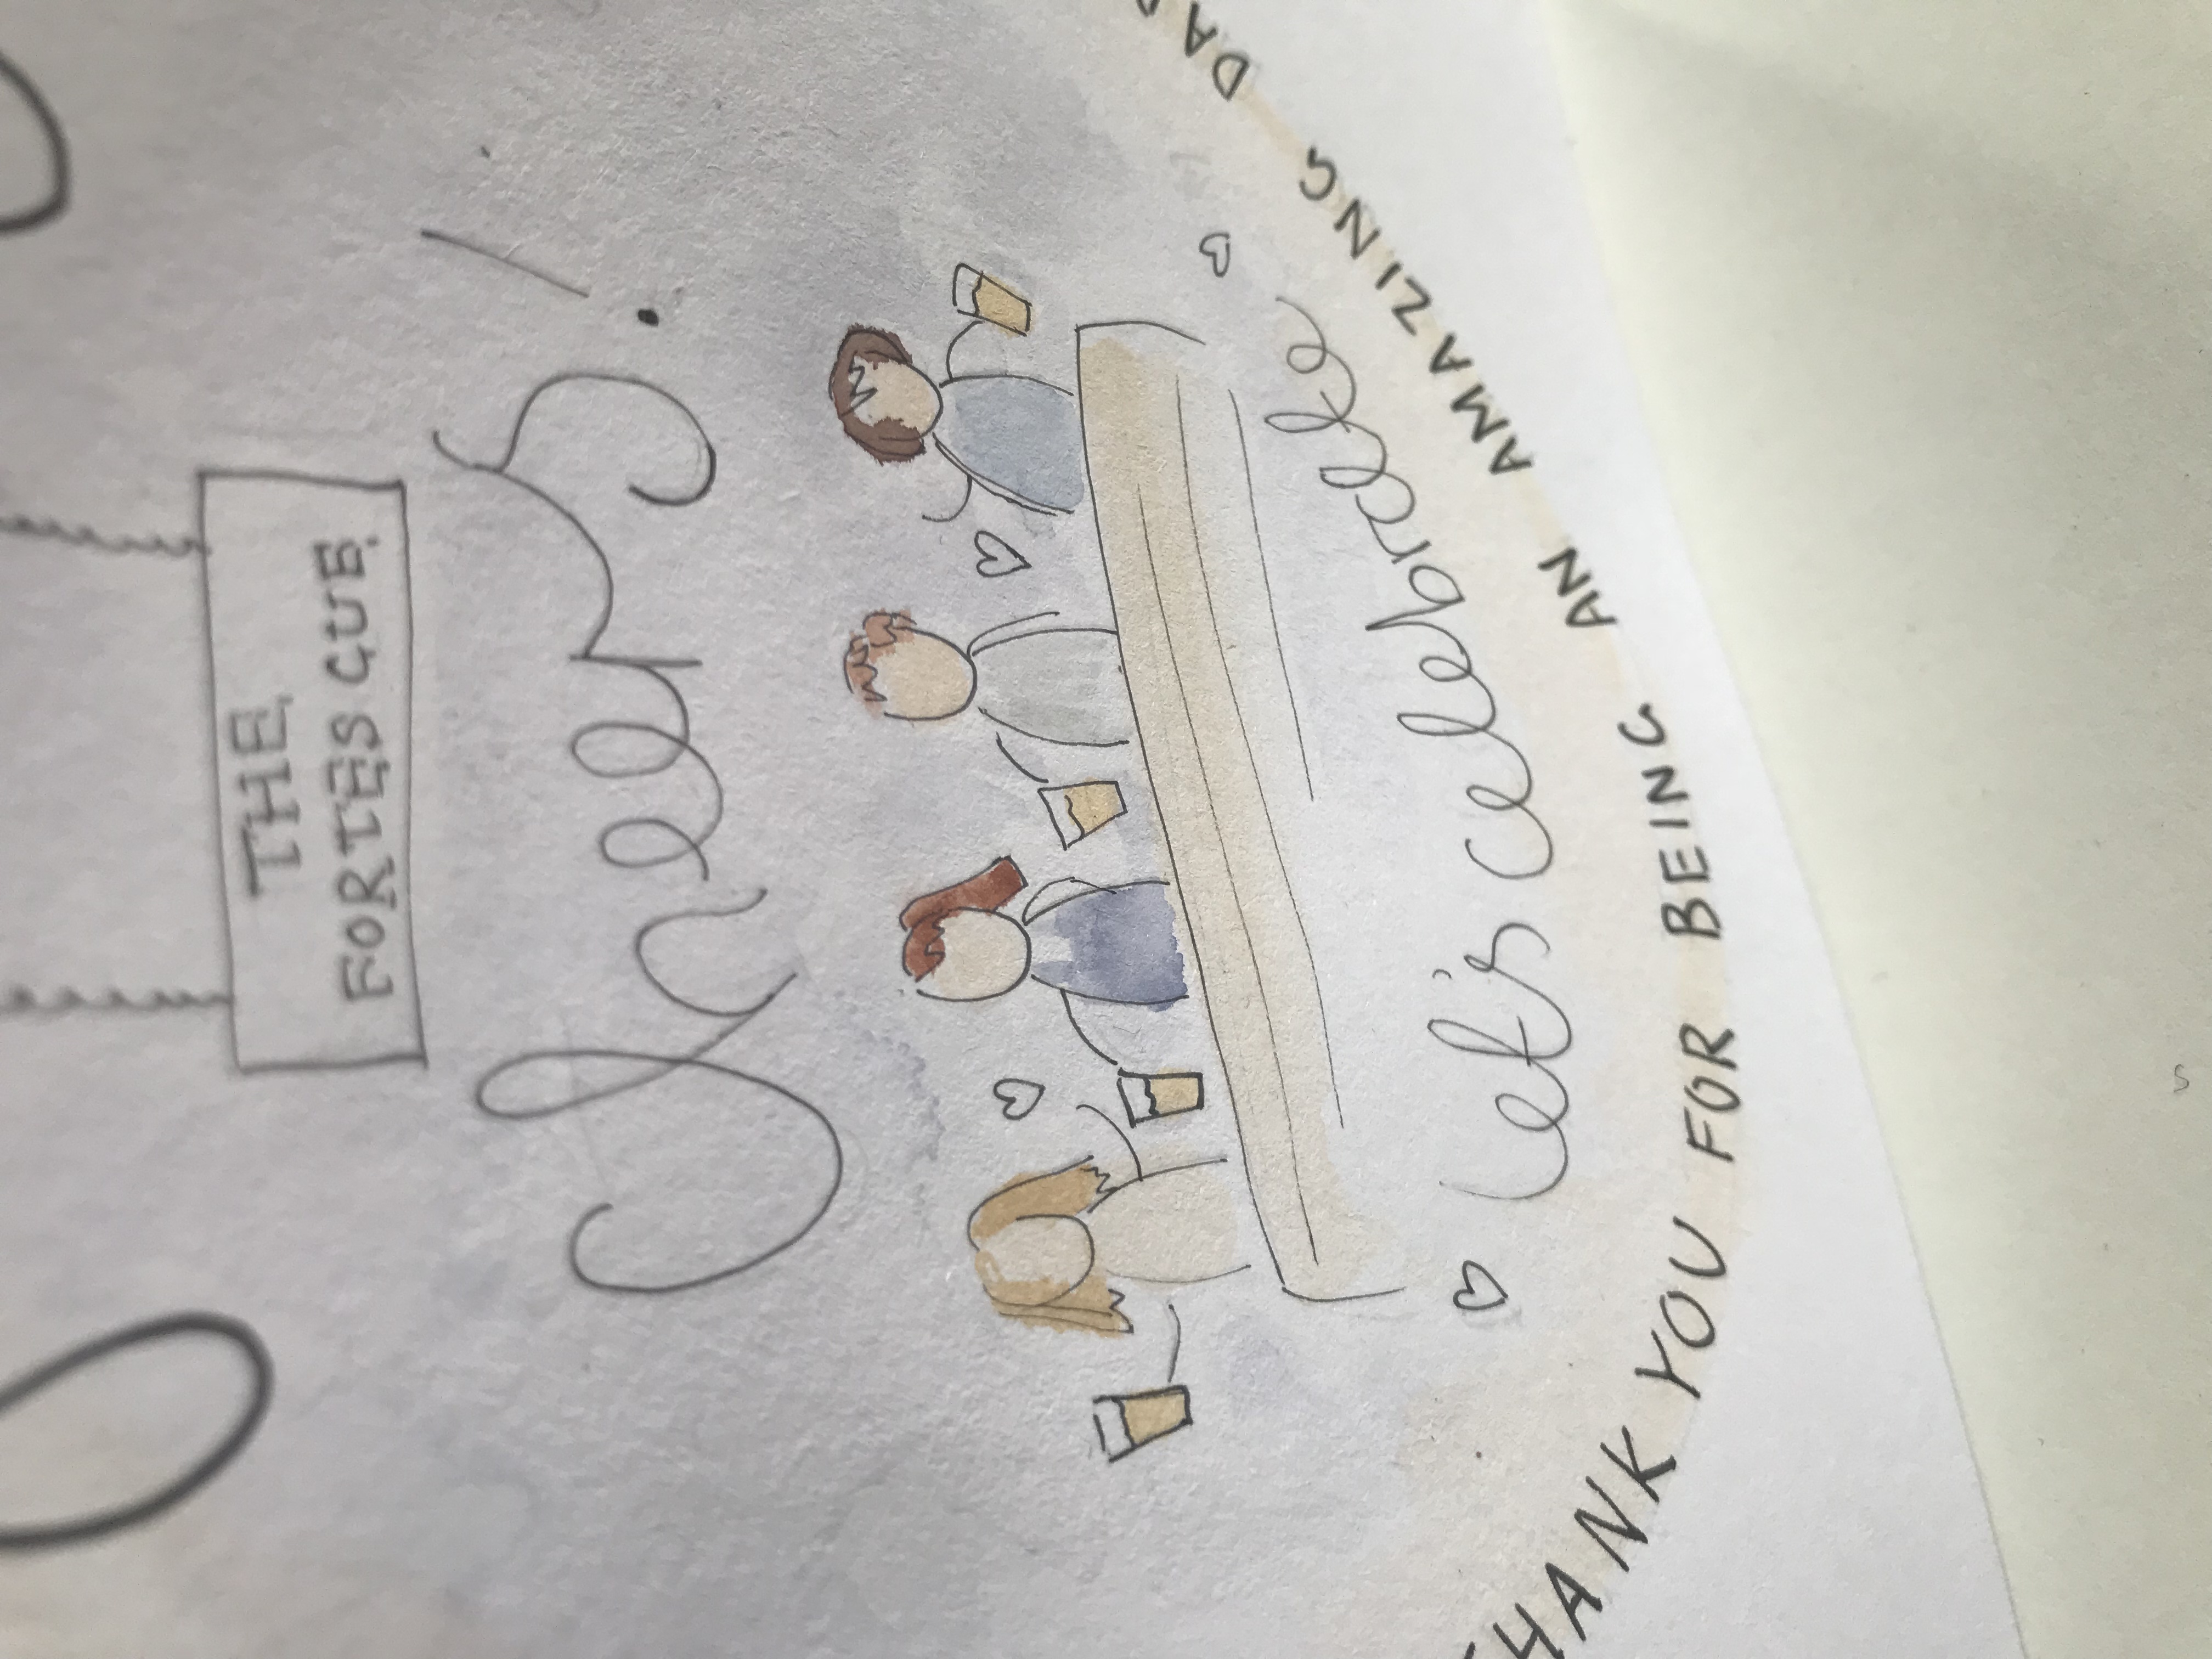 THE
FORTESCUE
Cheers!
let's celebrate
THANK YOU FOR BEING AN AMAZING